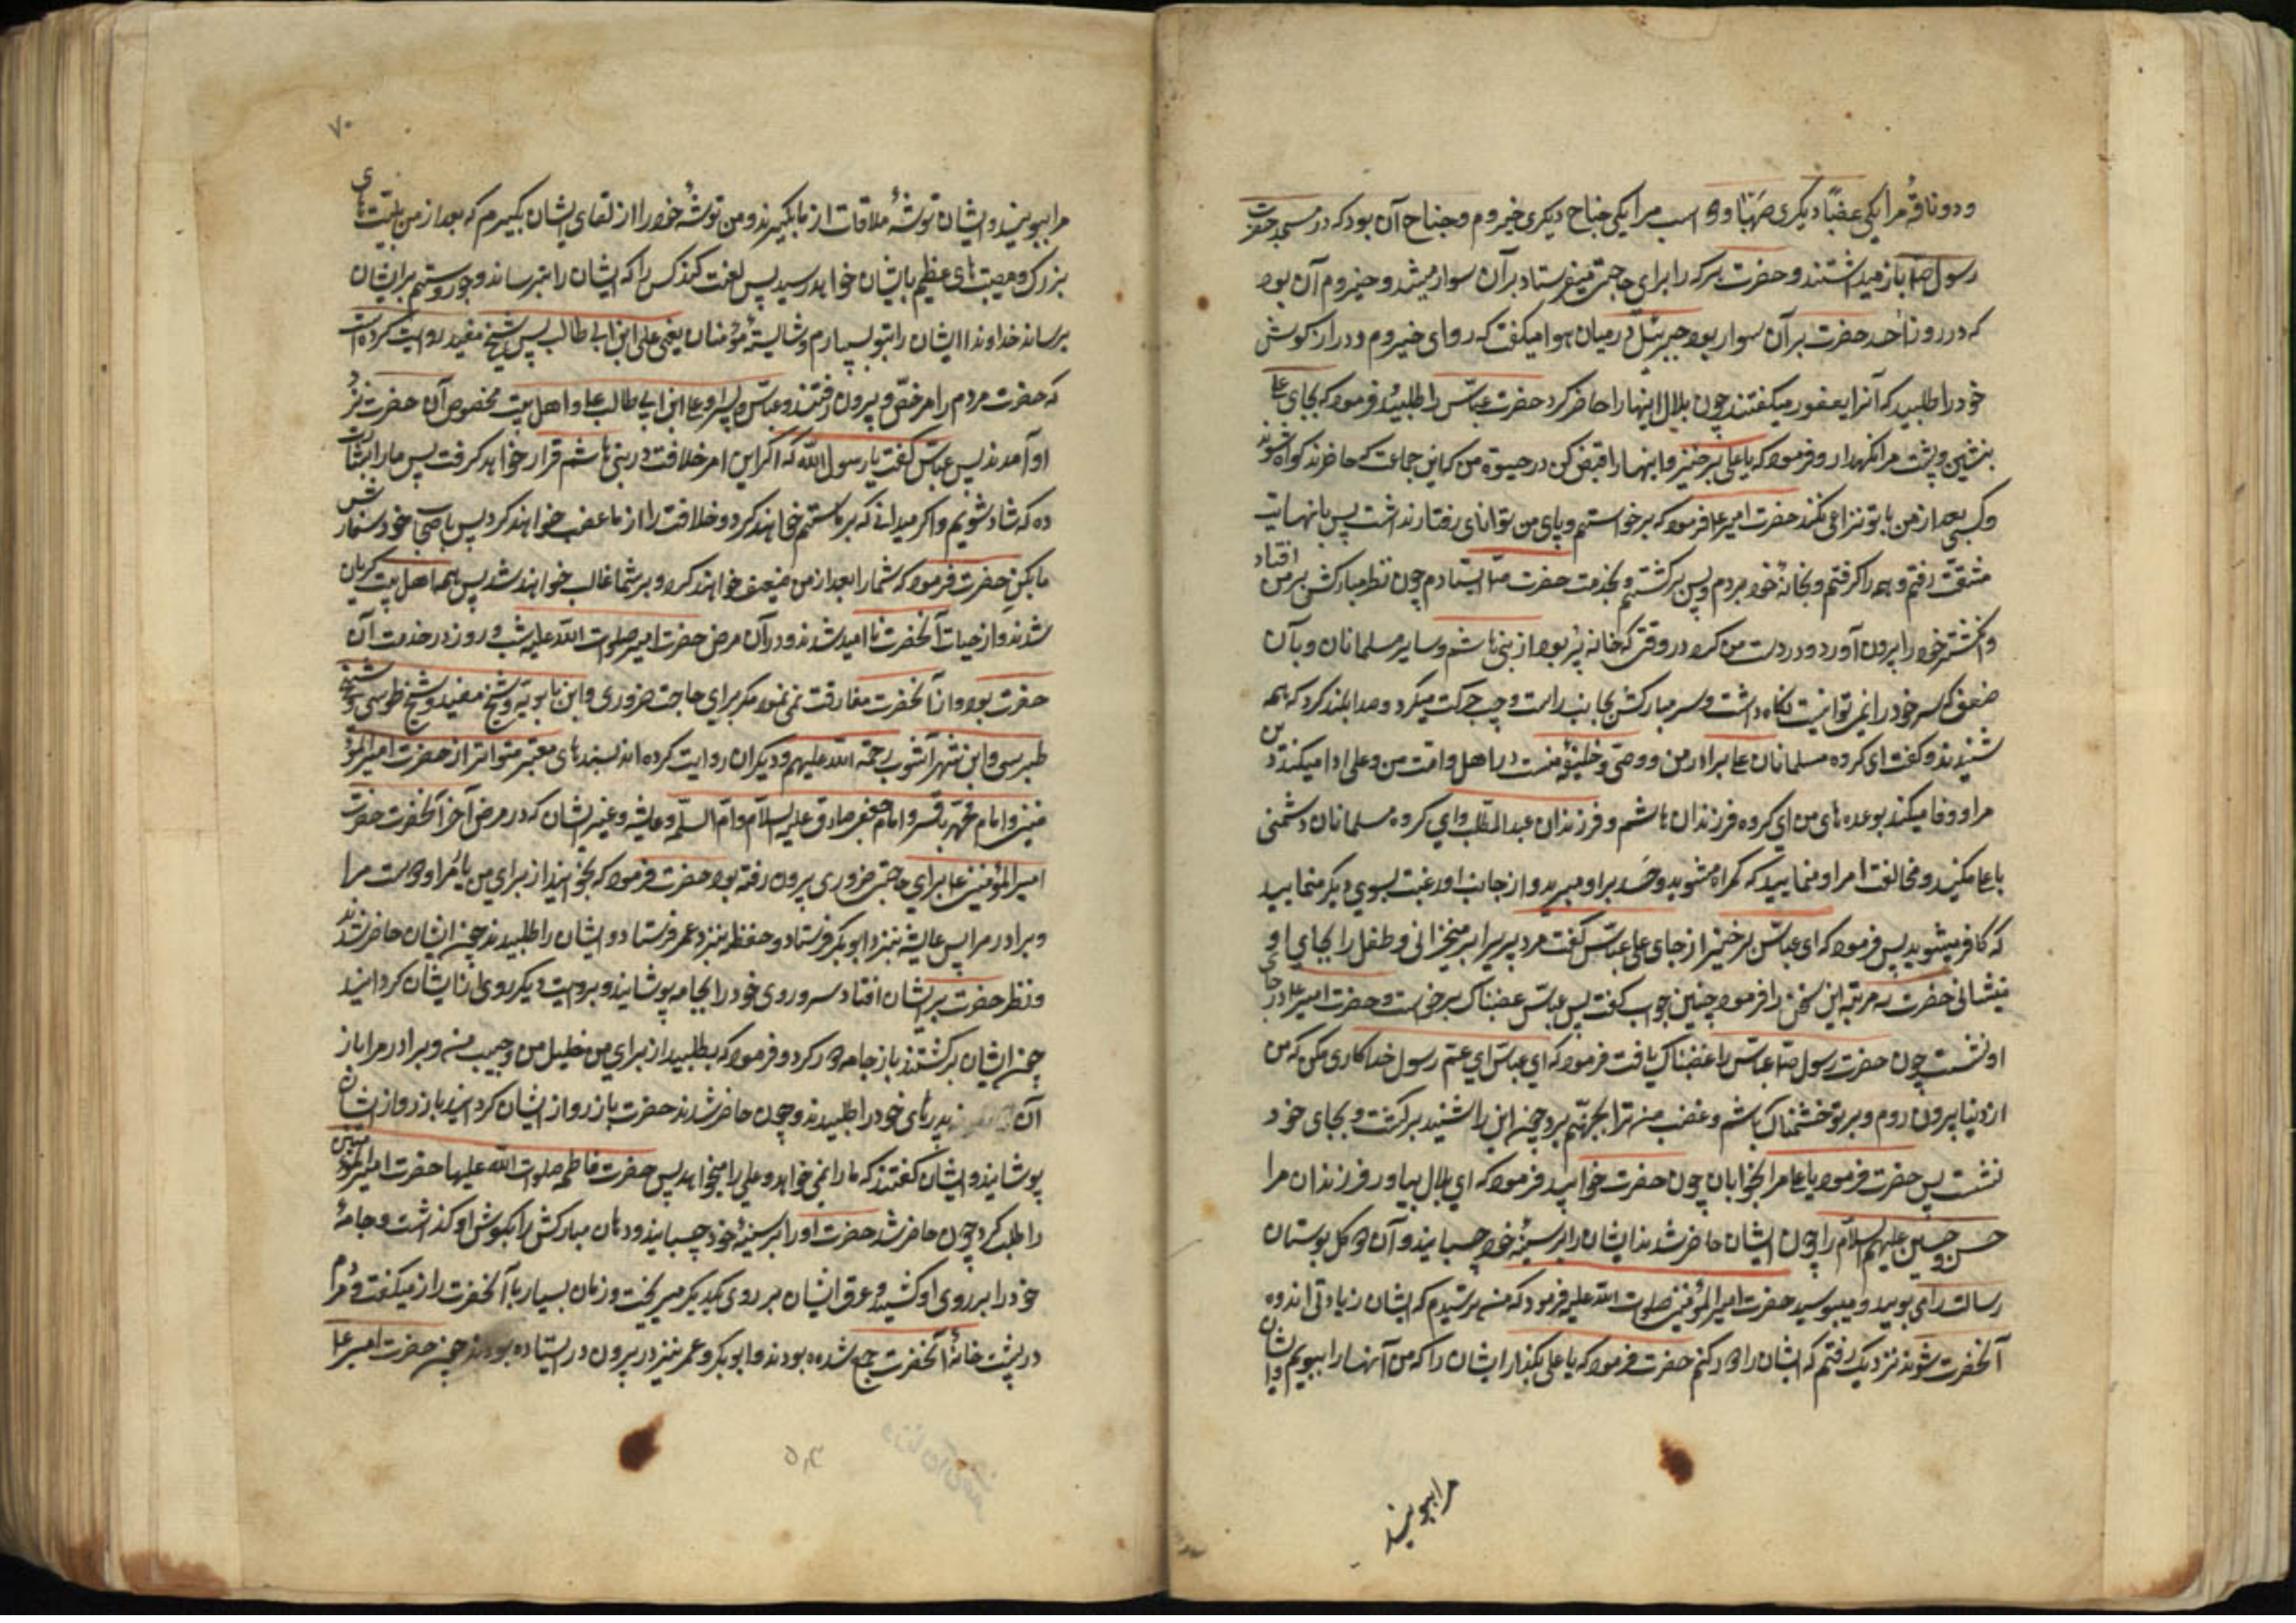 و دو ناقهٔ مرا یکی عضبا و دیگری صهبا و دو اسب مرا یکی جناح و دیگری خیزوم و جناح آن بود که در مسجد حضرت
رسول ص باز میداشتند و حضرت هرکه را برای حاجتی میفرستاد بر آن سوار میشد و حیزوم آن بود
که در روز احد حضرت بر آن سوار بود جبرئیل در میان هوا میکفت که روای خیزوم و دراز کوش
خود را طلبید که آنرا یعفور میکفتند چون بلال اینها را حاضر کرد حضرت عباس را طلبید و فرمود که بجای علی
بنشین و پشت مرا نکهدار و فرمود که یا علی برخیز و اینها را قبض کن در حیوة من که این جماعت که حاضرند کواه شوند
و کسی بعد از من با تو نزاعی نکند حضرت امیر ع فرمود که برخواستم و پای من توانای رفتار نداشت پس بانهایت
مشقت رفتم و همه را کرفتم و بخانهٔ خود بردم و پس برکشتم و بخدمت حضرت ایستادم چون نظر مبارکش بر من افتاد
و انکشتر خود را بیرون آورد و در دست من کرد در وقتی که خانه پر بود از بنی هاشم و سایر مسلمانان و با آن
ضعف که سر خود را نمی توانست نکاه داشت و سر مبارکش بجانب راست و چپ حرکت میکرد و صدا بلند کرد که همه
شنیدند و کفت ای کروه مسلمانان علی برادر من و وصی و خلیفهٔ منست در اهل و امت من و علی ادا میکند دین
مرا و وفا میکند بوعده های من ای کروه فرزندان هاشم و فرزندان عبدالمطلب و ای کروه مسلمانان دشمنی
با علی مکنید و مخالفت امر او منمایید که کمراه میشوید و حسد بر او مبرید و از جانب او رغبت بسوی دیکر منمایید
که کافر میشوید پس فرمود که ای عباس برخیز از جای علی عباس کفت مرد پیر را برمیخیزانی و طفل را بجای او
مینشانی حضرت سه مرتبه این سخن را فرمود و چنین جواب کفت پس عباس غضبناک برخواست و حضرت امیر ع در جای
او نشست چون حضرت رسول ص عباس را غضبناک یافت فرمود که ای عباس ای عم رسول خدا کاری مکن که من
از دنیا بیرون روم و بر تو خشمناک باشم و غضب من ترا بجهنم برد چون این را شنید برکشت و بجای خود
نشست پس حضرت فرمود یا علی مرا بخوابان چون حضرت خوابید فرمود که ای بلال بیاور فرزندان مرا
حسن و حسین علیهم السلام را چون ایشان حاضر شدند ایشان را بر سینهٔ خود چسبانید و آن دو کل بوستان
رسالت را می بویید و میبوسید حضرت امیر المؤمنین صلوات الله علیه فرمود که من ترسیدم که ایشان زیادتی اندوه
آنحضرت شوند نزدیک رفتم که ایشان را دور کنم حضرت فرمود که یا علی بکذار ایشان را که من آنها را ببویم و ایشان
مرا ببویند
۷۰
مرا ببویند و ایشان توشهٔ ملاقات از ما بکیرند و من توشهٔ خود را از لقای ایشان بکیرم که بعد از من بلیت های
بزرک و مصیبت های عظیم بایشان خواهد رسید پس لعنت کند کسی را که ایشان را بترساند و جور و ستم بر ایشان
برساند خداوندا ایشان را بتو بسپارم و شایستهٔ مؤمنان یعنی علی ابن ابی طالب پس شیخ مفید روایت کرده است
که حضرت مردم را مرخص و بیرون رفتند و عباس و پسر او و علی ابن ابی طالب ع و اهل بیت مخصوص آن حضرت نزد
او آمدند پس عباس کفت یا رسول الله که اکر این امر خلافت در بنی هاشم قرار خواهد کرفت پس ما را بشارت
ده که شاد شویم و اکر میدانی که بر ما ستم خواهند کرد و خلافت را از ما غضب خواهند کرد پس باصحاب خود سفارش
ما بکن حضرت فرمود که شما را بعد از من ضعیف خواهند کرد و بر شما غالب خواهند شد پس همه اهل بیت کریان
شدند و از حیات آنحضرت ناامید شدند و در آن مرض حضرت امیر صلوات الله علیه شب و روز در خدمت آن
حضرت بود و از آنحضرت مفارقت نمی نمود مکر برای حاجت ضروری و ابن بابویه و شیخ مفید و شیخ طوسی و شیخ
طبرسی و ابن شهر آشوب رحمة الله علیهم و دیکران روایت کرده اند بسند های معتبر متواتر از حضرت امیر المؤ
منین و امام محمد باقر و امام جعفر صادق علیه السلام و ام السلمه و عایشه و غیر ایشان که در مرض آخر آنحضرت حضرت
امیر المؤمنین ع برای حاجتی ضروری بیرون رفته بود حضرت فرمود که بخوانید از برای من یار مرا و دوست مرا
و برادر مرا پس عایشه بنزد ابوبکر فرستاد و حفظه بنزد عمر فرستاد و ایشان را طلبیدند چون ایشان حاضر شدند
و نظر حضرت بر ایشان افتاد سر و روی خود را بجامه پوشانید و بروایت دیکر روی از ایشان کردانید
چون ایشان برکشتند باز جامه دور کرد و فرمود که بطلبید از برای من خلیل من و حبیب من و برادر مرا باز
آن پدرهای خود را طلبیدند و چون حاضر شدند حضرت باز رو از ایشان کردانید باز رو از ایشان
پوشانید و ایشان کفتند که ما را نمی خواهد و علی را میخواهد پس حضرت فاطمه صلوات الله علیها حضرت امیر المؤمنین
را طلب کرد چون حاضر شد حضرت او را بر سینهٔ خود چسبانید و دهان مبارکش را بکوش او کذاشت و جامهٔ
خود را بر روی او کشید و عرق ایشان بر روی یکدیکر میریخت و زمان بسیار با آنحضرت راز میکفت و مردم
در پشت خانهٔ آنحضرت جمع شده بودند و ابوبکر و عمر نیز در بیرون در ایستاده بودند چون حضرت امیر ع